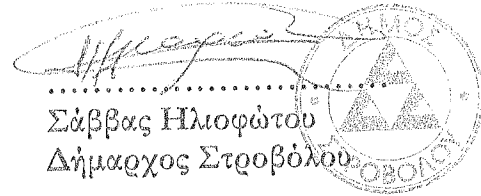 Σάββας Ηλιοφώτου
Δήμαρχος Στροβόλου
ΔΗΜΟΣ
ΣΤΡΟΒΟΛΟΥ